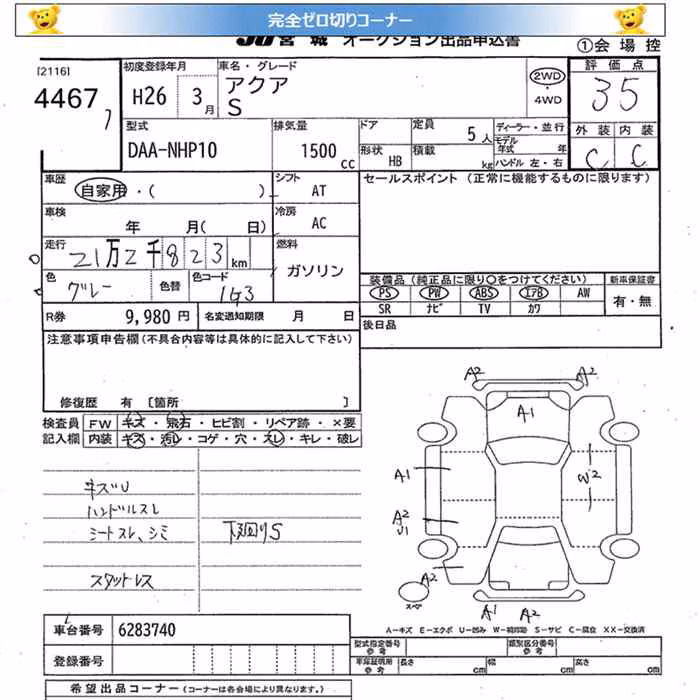 完全ゼロ切りコーナー
JU 宮城 オークション出品申込書
①会場控
[2116]
4467
初度登録年月
H26 3月
車名・グレード
アクア
S
2WD
・
4WD
評価点
35
外装 内装
C C
型式
DAA-NHP10
排気量
1500cc
ドア
形状 HB
定員 5人
積載 kg
ディーラー・並行
モデル年式 年
ハンドル 左・右
車歴
自家用・( )
シフト AT
車検
年 月( 日)
冷房 AC
走行
21万2千823km
燃料
ガソリン
色
グレー
色替
色コード
1G3
R券 9,980円
名変通知期限 月 日
セールスポイント (正常に機能するものに限ります)
装備品 (純正品に限り○をつけてください)
新車保証書
PS PW ABS エアB AW
有・無
SR ナビ TV カワ
後日品
注意事項申告欄(不具合内容等は具体的に記入して下さい)
修復歴 有 [箇所 ]
検査員 FW キズ・飛石・ヒビ割・リペア跡・×要
記入欄 内装 キズ・汚レ・コゲ・穴・スレ・キレ・破レ
キズU
ハンドルスレ
シートスレ、シミ 下廻りS
スタットレス
A2 A2
A1
A1
W2
A2
U1
A2
スペア
A1 A2
A－キズ E－エクボ U－凹み W－補修跡 S－サビ C－腐食 XX－交換済
車台番号 6283740
登録番号
型式指定番号
参考
類別区分番号
参考
車庫証明用
参考
長さ cm 幅 cm 高さ cm
希望出品コーナー (コーナーは各会場により異なります。)